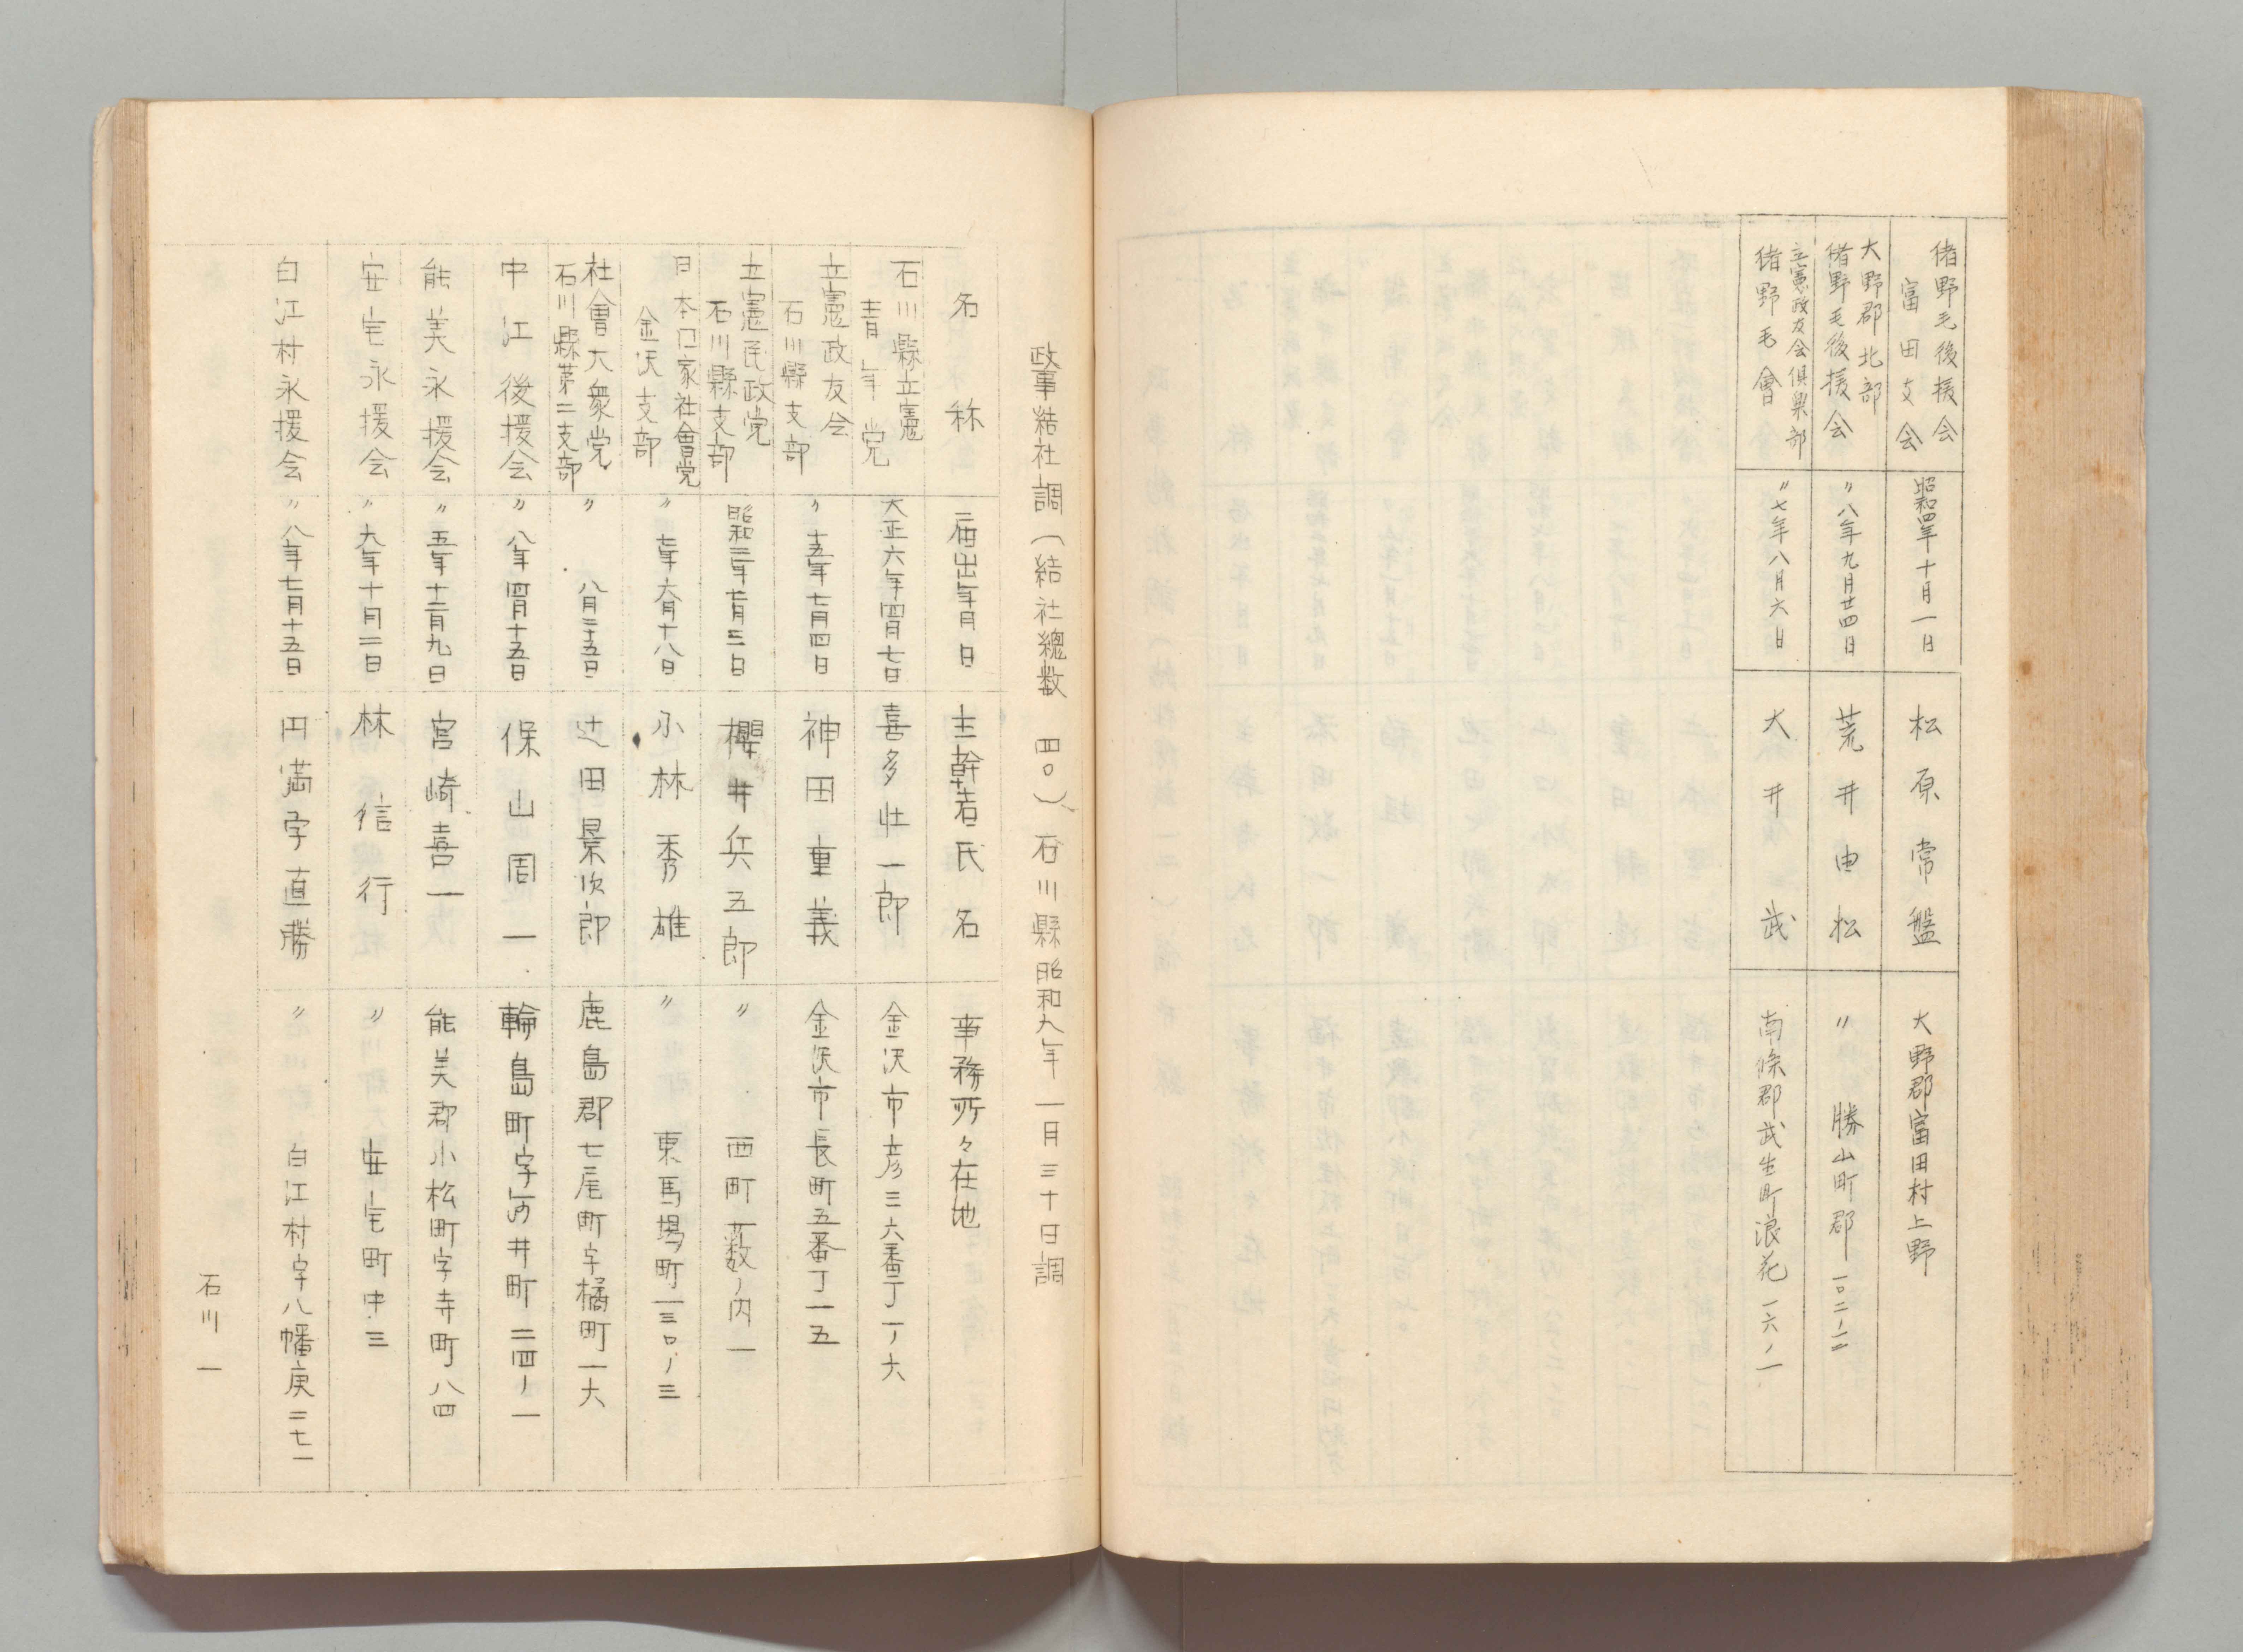 猪野毛後援会
富田支会
昭和四年十月一日
松原常盤
大野郡富田村上野
大野郡北部
猪野毛後援会
〃八年九月廿四日
荒井由松
〃 勝山町郡一〇二ノ二
立憲政友会倶楽部
猪野毛會
〃七年八月六日
大井武
南條郡武生町浪花一六ノ一
政事結社調(結社総数 四〇)石川縣昭和九年一月三十日調
名称
届出年月日
主幹者氏名
事務所々在地
石川縣立憲
青年党
大正六年四月七日
喜多壮一郎
金沢市彦三六番丁一ノ六
立憲政友会
石川縣支部
〃十五年七月四日
神田重義
金沢市長町五番丁一五
立憲民政党
石川縣支部
昭和二年七月三日
櫻井兵五郎
〃 西町薮ノ内一
日本囗家社會党
金沢支部
〃七年六月十八日
小林秀雄
〃 東馬場町一三〇ノ三
社會大衆党
石川縣第二支部
〃 八月二十五日
辻田景次郎
鹿島郡七尾町字橘町一六
中江後援会
〃八年四月十五日
保山周一
輪島町字河井町二四ノ一
能美永援会
〃五年十二月九日
宮崎喜一
能美郡小松町字寺町八四
安宅永援会
〃九年十月二日
林信行
〃 安宅町中三
白江村永援会
〃八年七月十五日
円満字直勝
〃 白江村字八幡庚二七一
石川一